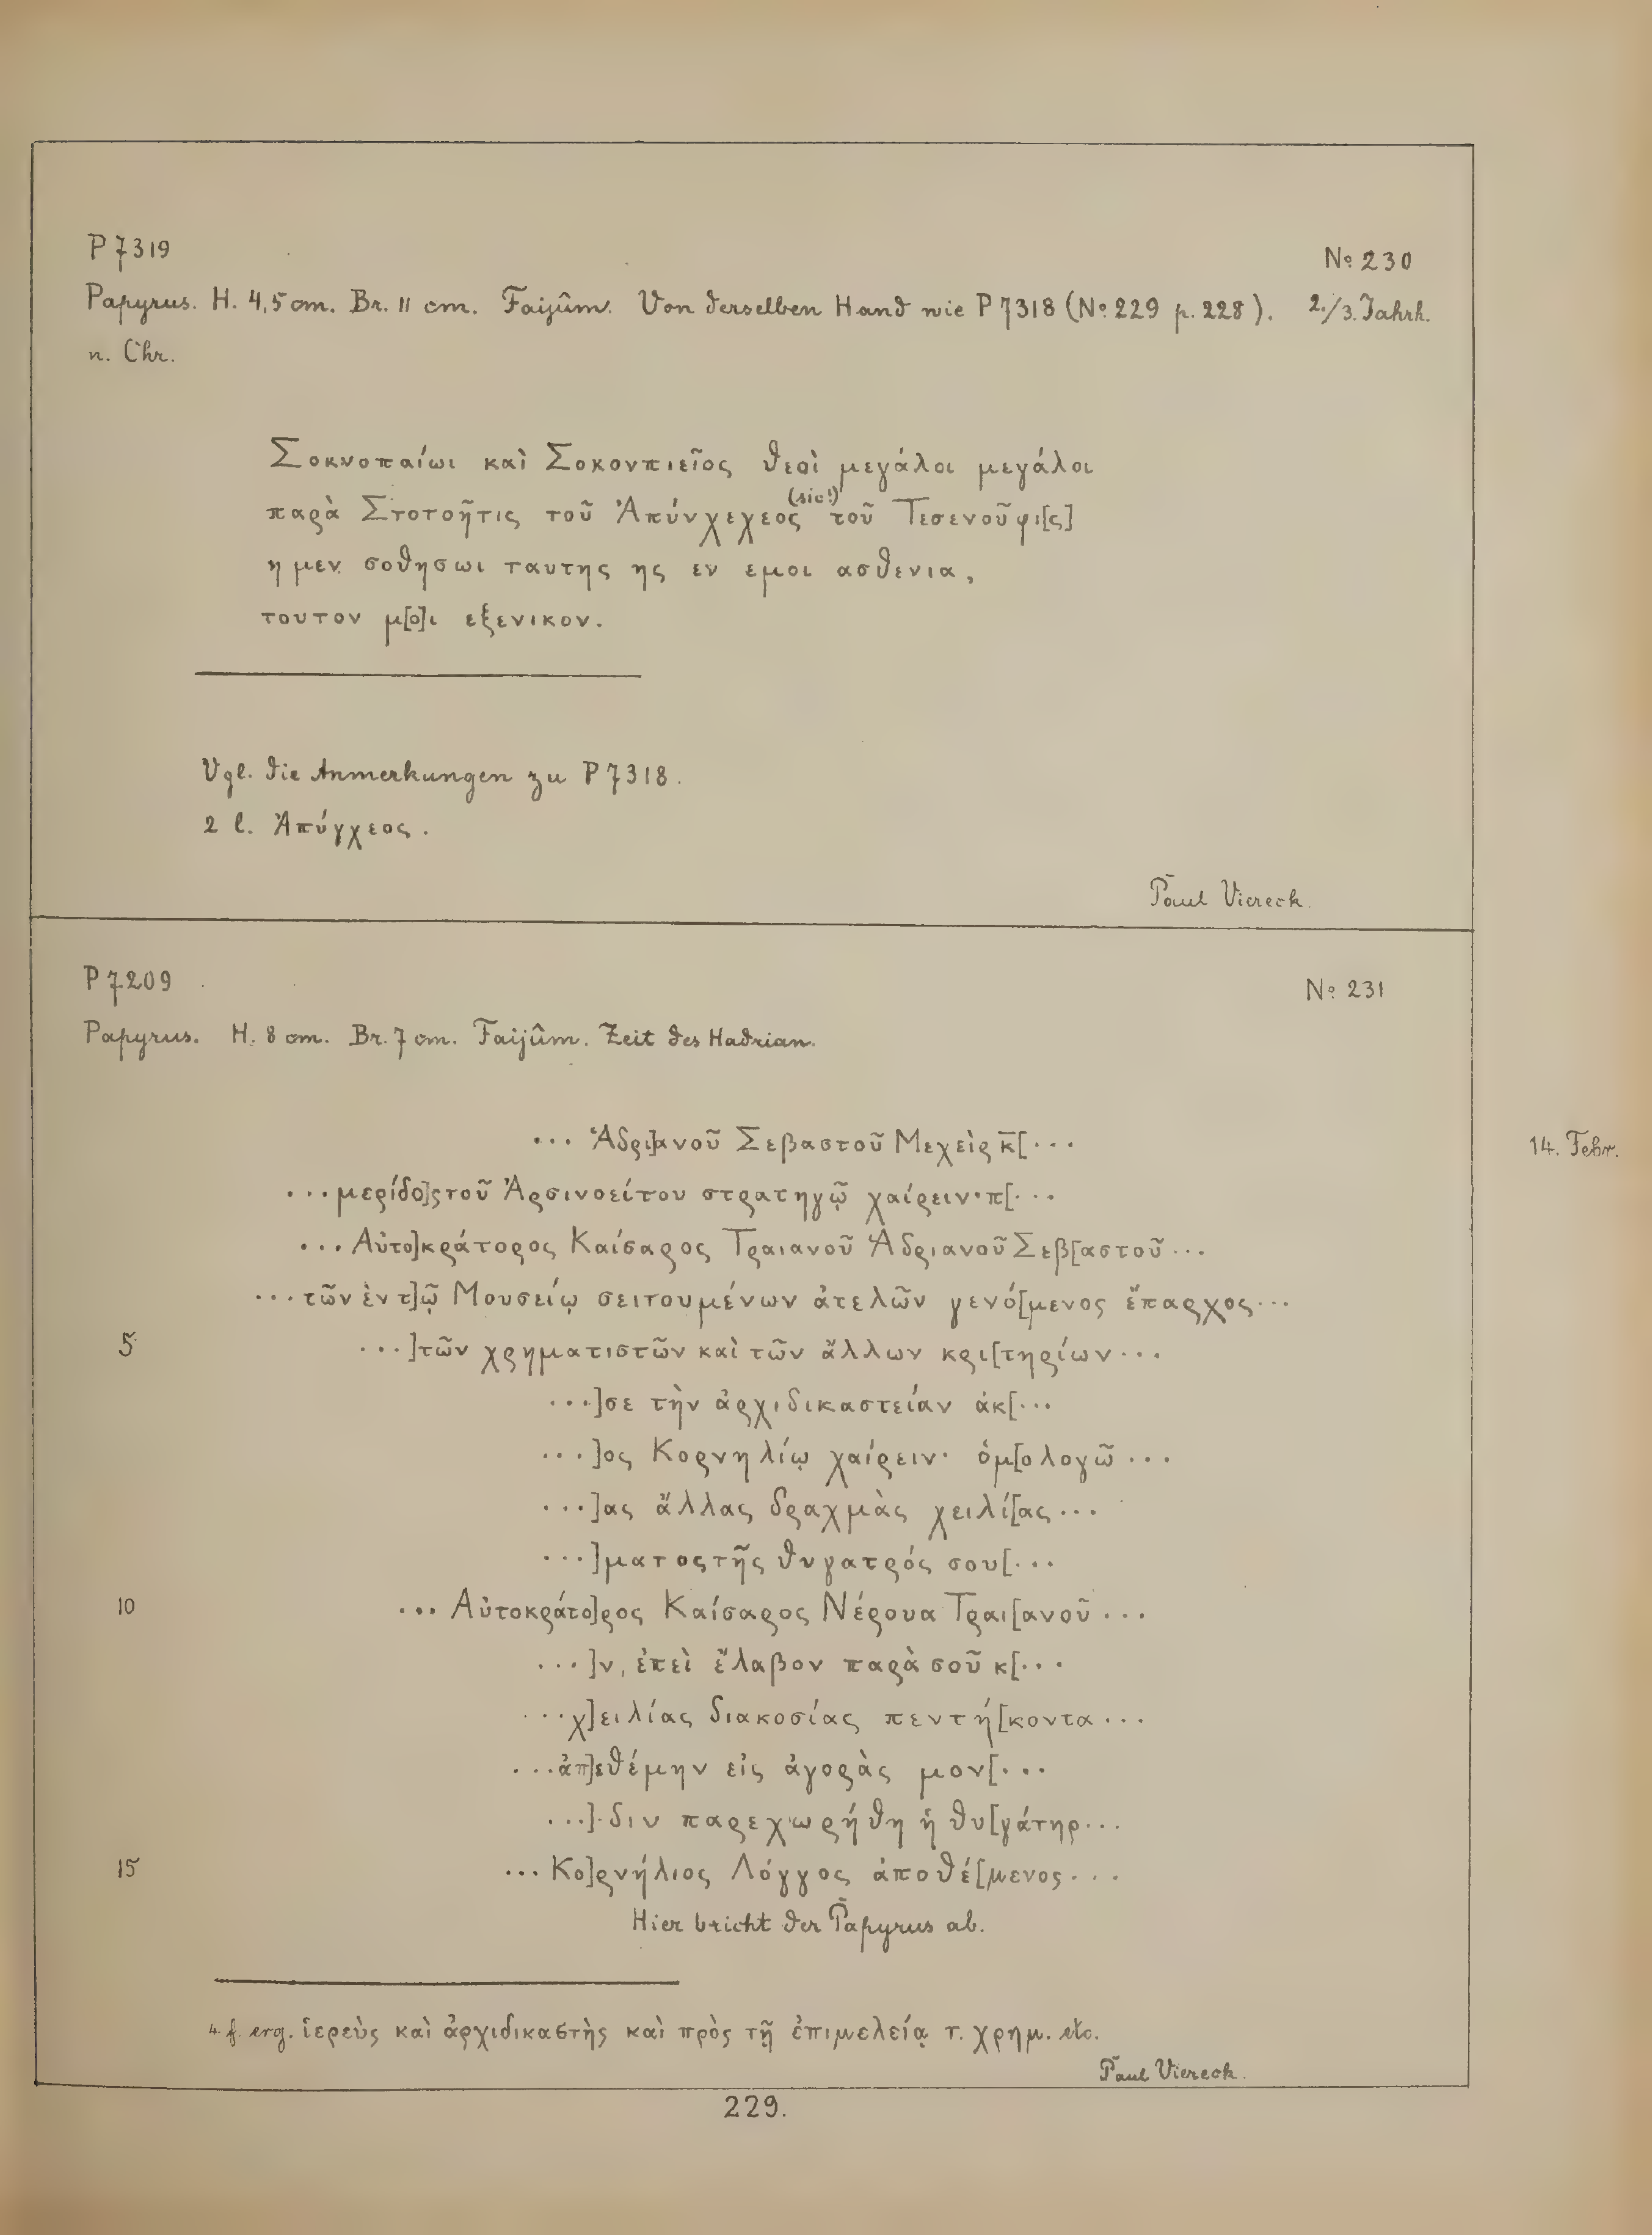 P 7319
Nº 230
Papyrus. H. 4,5 cm. Br. 11 cm. Faijûm. Von derselben Hand wie P 7318 (Nº 229 p. 228). 2./3. Jahrh.
n. Chr.
Σοκνοπαίωι καὶ Σοκονπιεῖος θεοὶ μεγάλοι μεγάλοι
(sic!)
παρὰ Στοτοῆτις τοῦ Ἀπύνχεχεος τοῦ Τεσενοῦφι[ς]
η μεν σοθησωι ταυτης ης εν εμοι ασθενια,
τουτον μ[ο]ι εξενικον.
Vgl. die Anmerkungen zu P 7318.
2 l. Ἀπύγχεος.
Paul Viereck.
P 7209
Nº 231
Papyrus. H. 8 cm. Br. 7 cm. Faijûm. Zeit des Hadrian.
... Ἁδρι]ανοῦ Σεβαστοῦ Μεχεὶρ κ̅[...
14. Febr.
... μερίδο]ς τοῦ Ἀρσινοείτου στρατηγῷ χαίρειν· π[...
... Αὐτο]κράτορος Καίσαρος Τραιανοῦ Ἁδριανοῦ Σεβ[αστοῦ ...
... τῶν ἐν τ]ῷ Μουσείῳ σειτουμένων ἀτελῶν γενό[μενος ἔπαρχος ...
5 ...]τῶν χρηματιστῶν καὶ τῶν ἄλλων κρι[τηρίων ...
...]σε τὴν ἀρχιδικαστείαν ἀκ[...
...]ος Κορνηλίῳ χαίρειν· ὁμ[ολογῶ ...
...]ας ἄλλας δραχμὰς χειλί[ας ...
...]ματος τῆς θυγατρός σου[...
10 ... Αὐτοκράτο]ρος Καίσαρος Νέρουα Τραι[ανοῦ ...
...]ν, ἐπεὶ ἔλαβον παρὰ σοῦ κ[...
... χ]ειλίας διακοσίας πεντή[κοντα ...
... ἀπ]εθέμην εἰς ἀγορὰς μον[...
...]·διν παρεχωρήθη ἡ θυ[γάτηρ ...
15 ... Κο]ρνήλιος Λόγγος ἀποθέ[μενος ...
Hier bricht der Papyrus ab.
4 f. erg. ἱερεὺς καὶ ἀρχιδικαστὴς καὶ πρὸς τῇ ἐπιμελείᾳ τ. χρημ. etc.
Paul Viereck.
229.